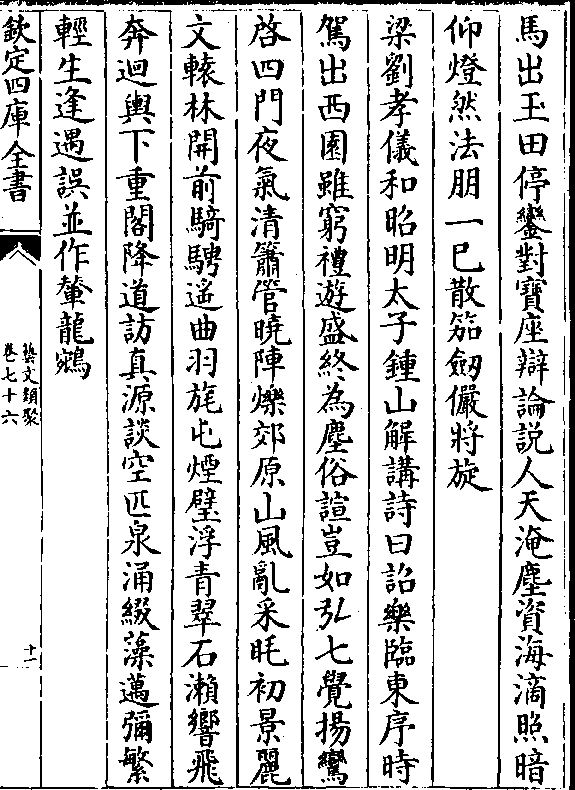 馬出玉田停鑾對寶座辯論說人天淹塵資海滴照暗
仰燈然法朋一巳散笳劒儼將旋
梁劉孝儀和昭明太子鍾山解講詩曰詔樂臨東序時
駕出西園雖窮禮遊盛終為塵俗諠豈如弘七覺揚鸞
啓四門夜氣清簫管曉陣爍郊原山風亂采眊初景麗
文轅林開前騎騁遥曲羽旄屯煙壁浮青翠石瀨響飛
奔迴輿下重閣降道訪真源談空匹泉涌綴藻邁彌繁
輕生逢遇誤並作輦龍鵷
欽定四庫全書
藝文類聚
卷七十六
十一